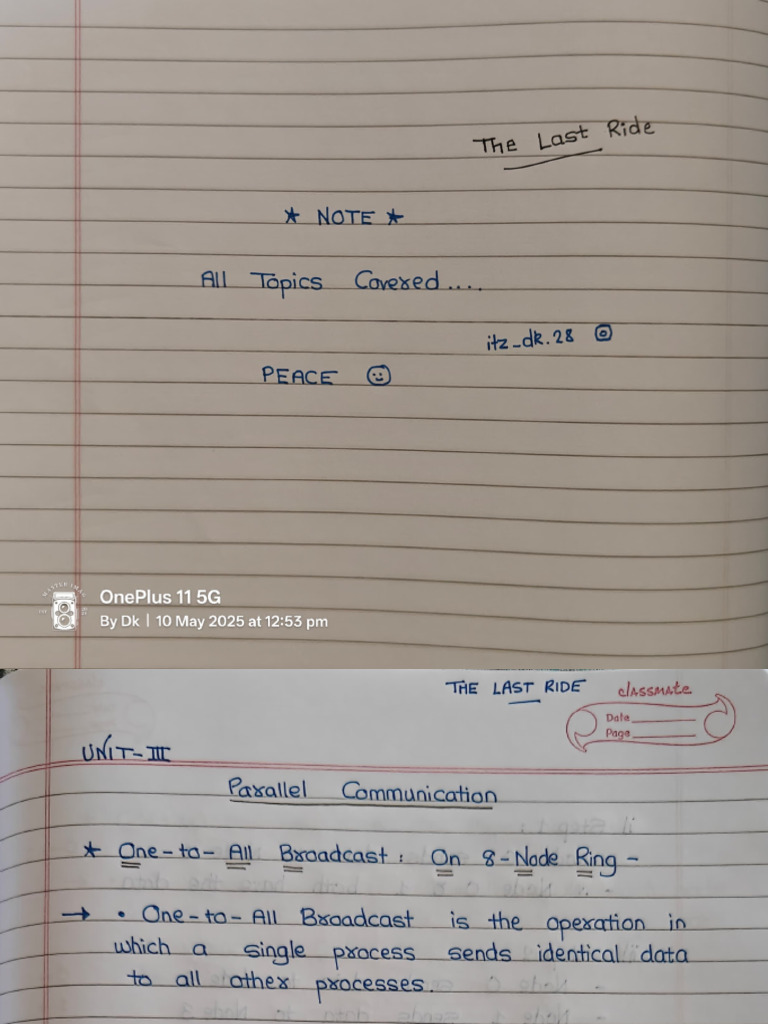 The Last Ride
★ NOTE ★
All Topics Covered....
itz_dk.28
PEACE
OnePlus 11 5G
By Dk | 10 May 2025 at 12:53 pm
THE LAST RIDE
classmate
Date
Page
UNIT-III
Parallel Communication
★ One-to-All Broadcast: On 8-Node Ring -
→ • One-to-All Broadcast is the operation in
which a single process sends identical data
to all other processes.